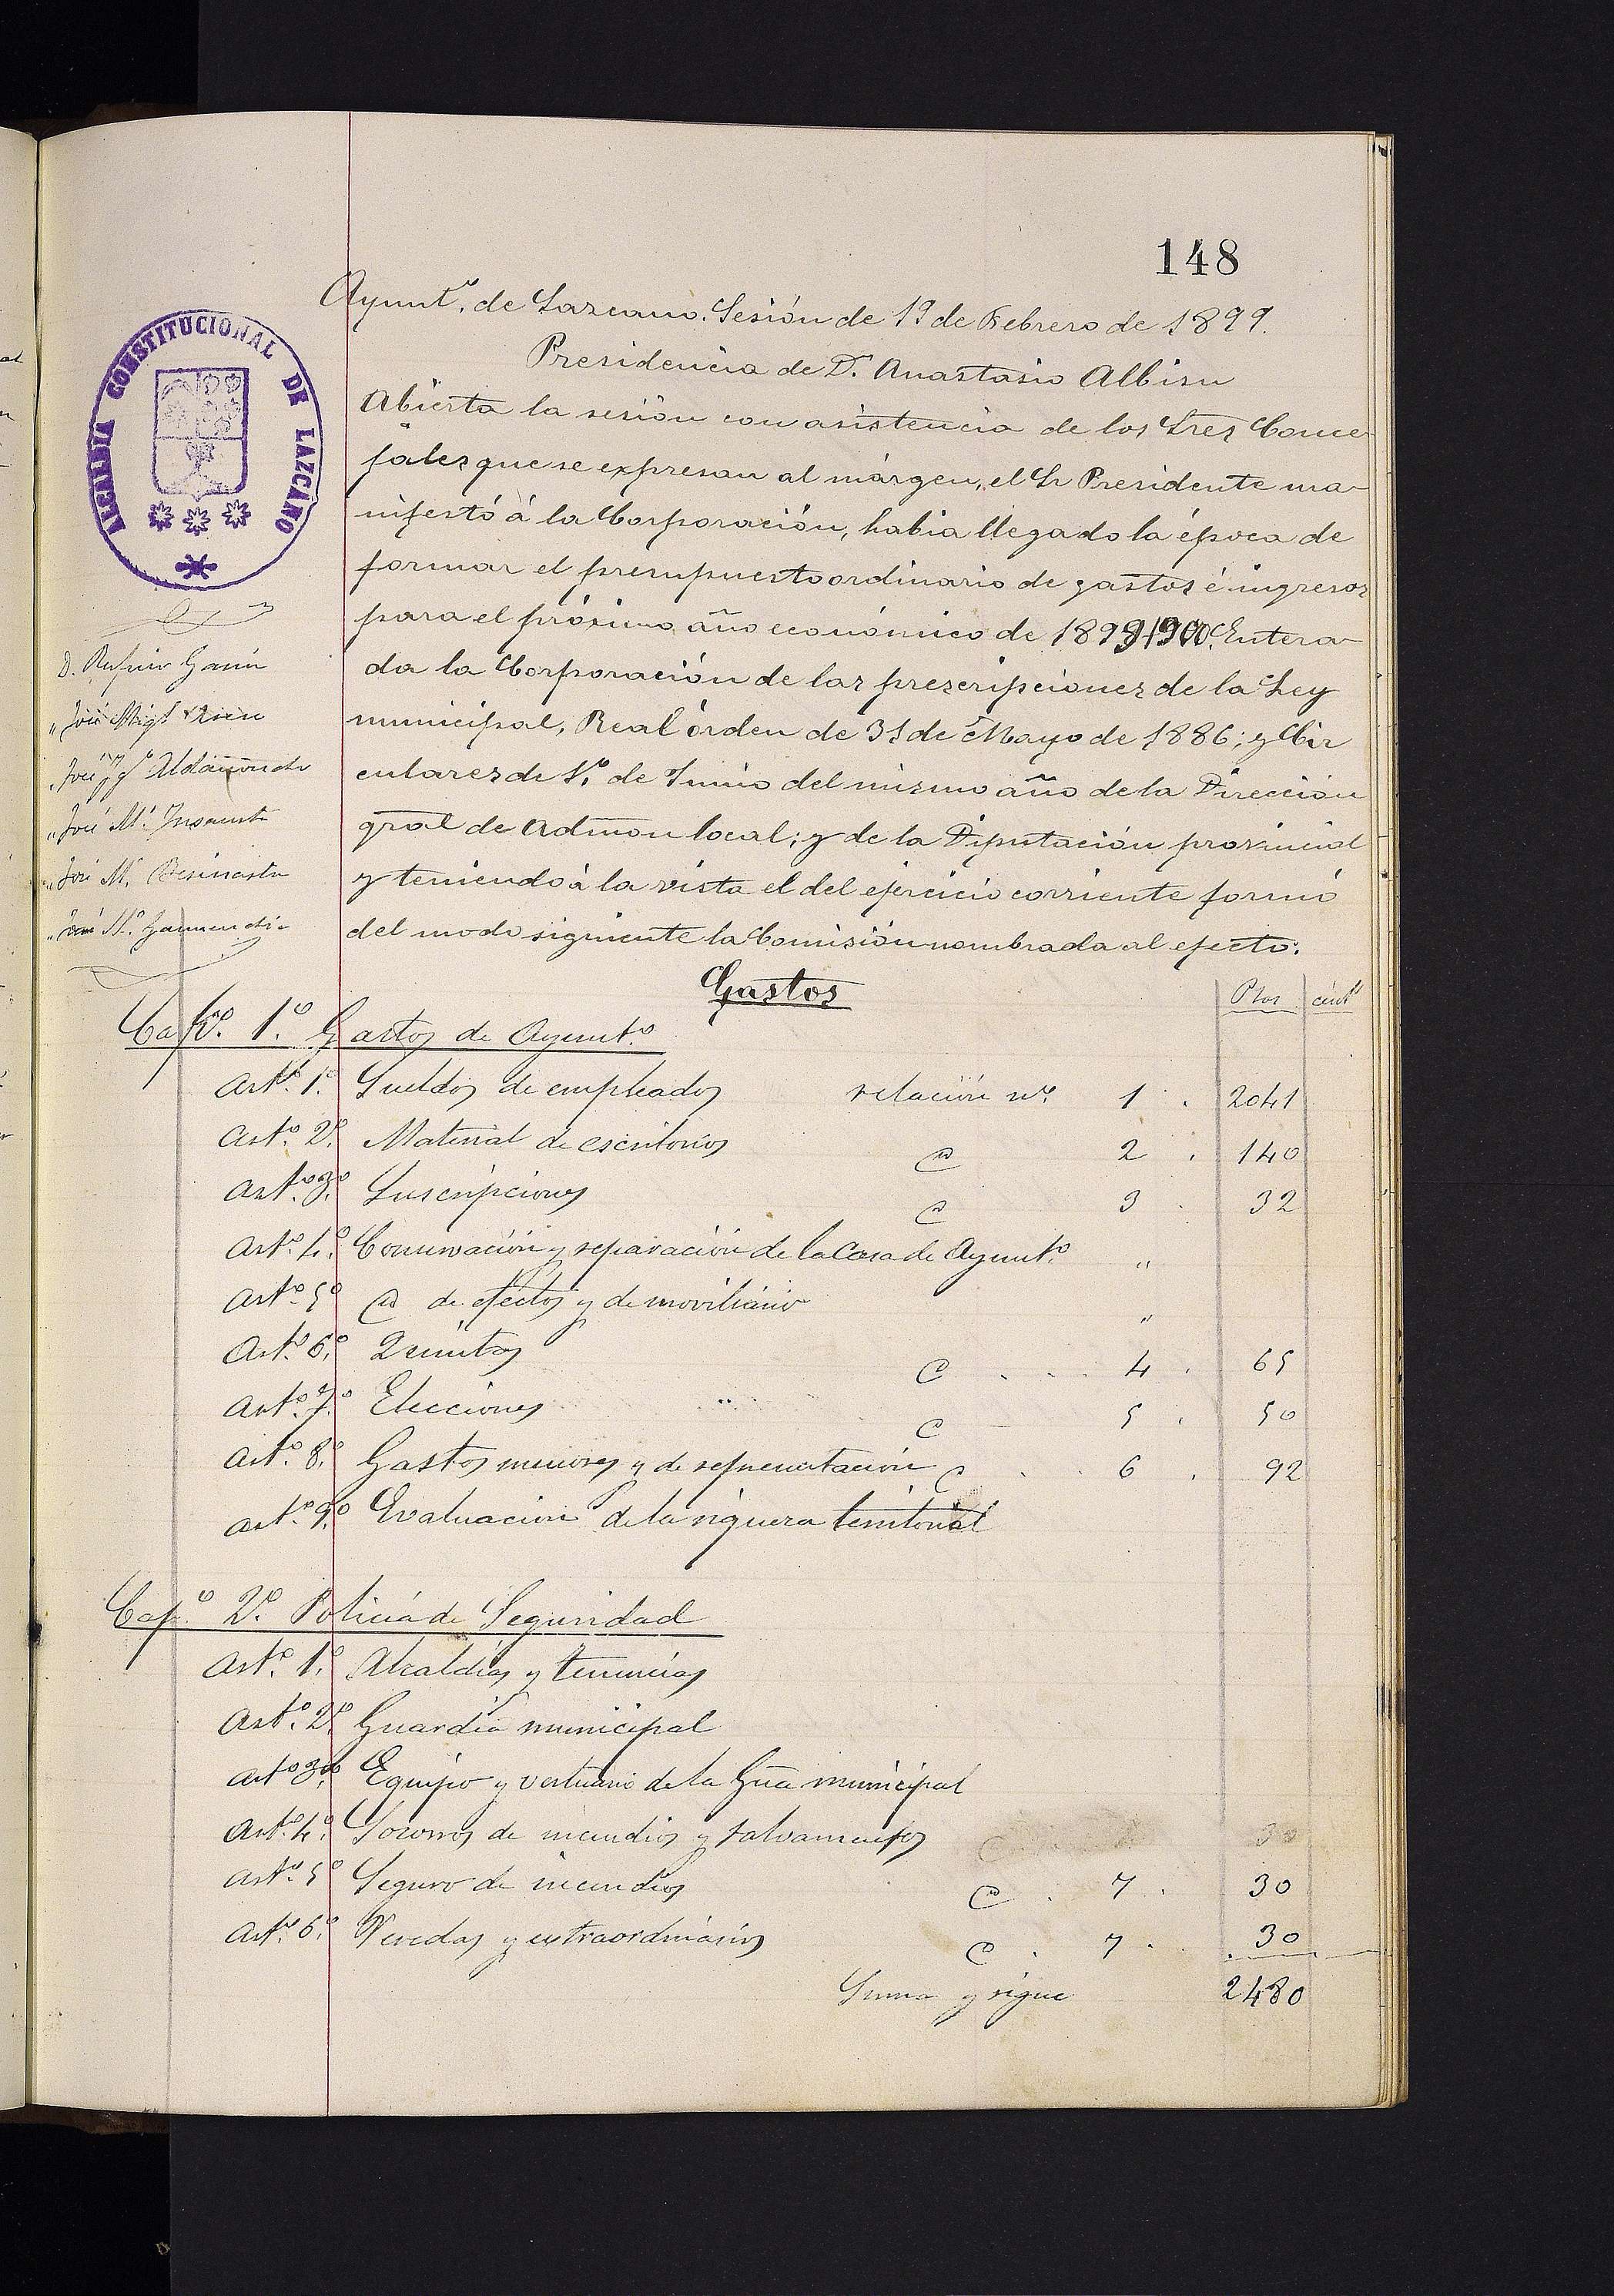 148
Ayuntº. de Lazcano. Sesión de 19 de Febrero de 1899.
Presidencia de D. Anastasio Albisu
ALCALDIA CONSTITUCIONAL DE LAZCANO
Abierta la sesión con asistencia de los Sres Conce-
jales que se expresan al márgen, el Sr Presidente ma-
nifestó á la Corporación, habia llegado la época de
formar el presupuesto ordinario de gastos é ingresos
para el próximo año económico de 1899/900. Entera-
da la Corporación de las prescripciones de la Ley
municipal, Real órden de 31 de Mayo de 1886; y Cir
culares de 1º de Junio del mismo año de la Dirección
gral de Admon local; y de la Diputación provincial
y teniendo á la vista el del ejercicio corriente formó
del modo siguiente la Comisión nombrada al efecto:
D. Rufino Garin
" José Migl
" José Igº Aldasoro
" José Mª Insausti
" José M.
" José Mª Garmendia
Gastos
Ptas cént
Capº. 1.º Gastos de Ayuntº
Artº. 1º. Sueldos de empleados relación nº 1 . 2041
Artº. 2º. Material de escritorios id 2 . 140
Artº. 3º. Suscripciones id 3 . 32
Artº. 4º. Conservación y reparación de la Casa de Ayuntº "
Artº. 5º id de efectos y de moviliario "
Artº. 6º. Quintas id . . . 4 . 65
Artº. 7º. Elecciones " id 5 . 50
Artº. 8º. Gastos menores y de representación id . . 6 . 92
Artº. 9º. Evaluación de la riqueza territorial
Capº. 2º. Policía de Seguridad
Artº. 1º. Alcaldías y tenencias
Artº. 2º. Guardia municipal
Artº 3º. Equipo y vestuario de la Gua municipal
Artº. 4º. Socorros de incendios y salvamentos 30
Artº. 5º Seguro de incendios id . 7 . 30
Artº. 6º. Veredas y extraordinarios id . 7 . 30
Suma y sigue 2480